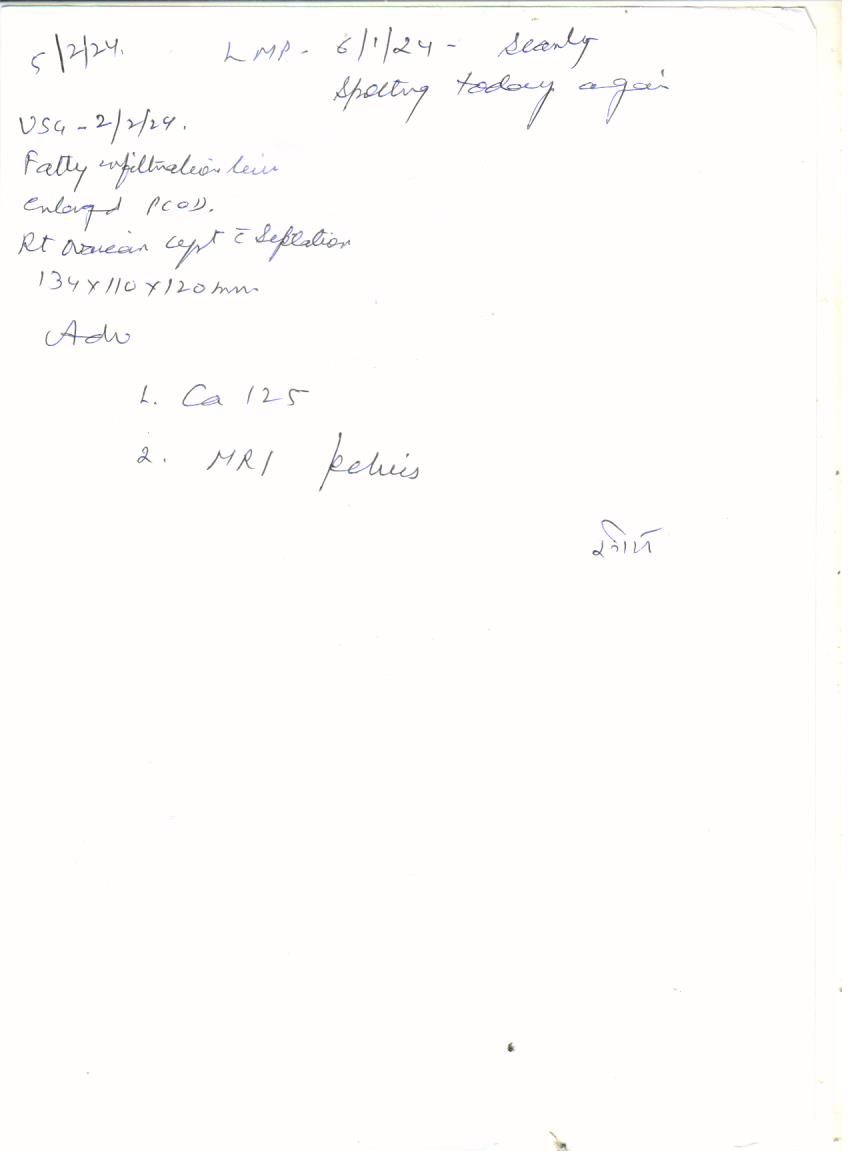 5/2/24. LMP - 6/1/24 - Scanty
Spotting today again
USG - 2/2/24.
Fatty infiltration liver
enlarged PCOD.
Rt ovarian cyst c̄ Septation
134 x 110 x 120 mm
Adv
1. Ca 125
2. MRI pelvis